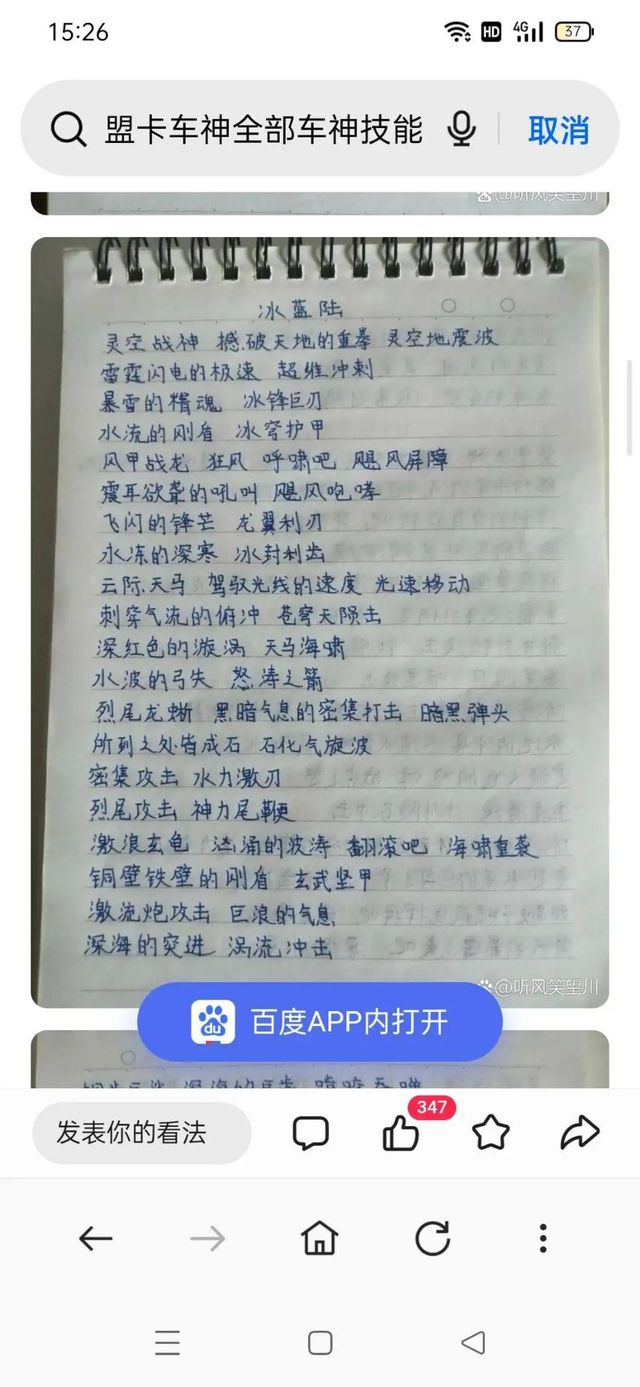 15:26
HD 4G 37
盟卡车神全部车神技能
取消
@听风笑望川
冰蓝陆
灵空战神 撼破天地的重拳 灵空地震波
雷霆闪电的极速 超维冲刺
暴雪的精魂 冰锋巨刃
水流的刚盾 冰穹护甲
风甲战龙 狂风 呼啸吧 飓风屏障
震耳欲聋的吼叫 飓风咆哮
飞闪的锋芒 龙翼利刃
冰冻的深寒 冰封利齿
云际天马 驾驭光线的速度 光速移动
刺穿气流的俯冲 苍穹天陨击
深红色的漩涡 天马海啸
水波的弓矢 怒涛之箭
烈尾龙蜥 黑暗气息的密集打击 暗黑弹头
所到之处皆成石 石化气旋波
密集攻击 水力激刃
烈尾攻击 神力尾鞭
激浪玄龟 汹涌的波涛 翻滚吧 海啸重袭
铜壁铁壁的刚盾 玄武坚甲
激流炮攻击 巨浪的气息
深海的突进 涡流冲击
@听风笑望川
百度APP内打开
发表你的看法
347